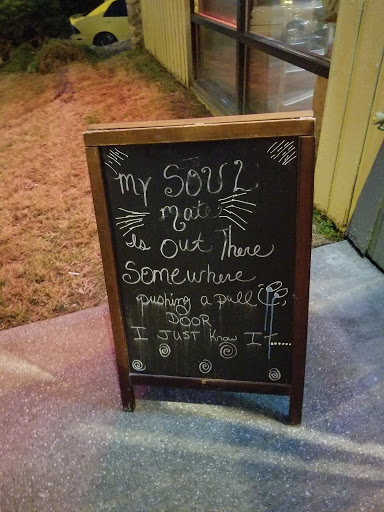 my SOUL
mate
Is Out There
Somewhere
pushing a pull
DOOR
I JUST Know It......